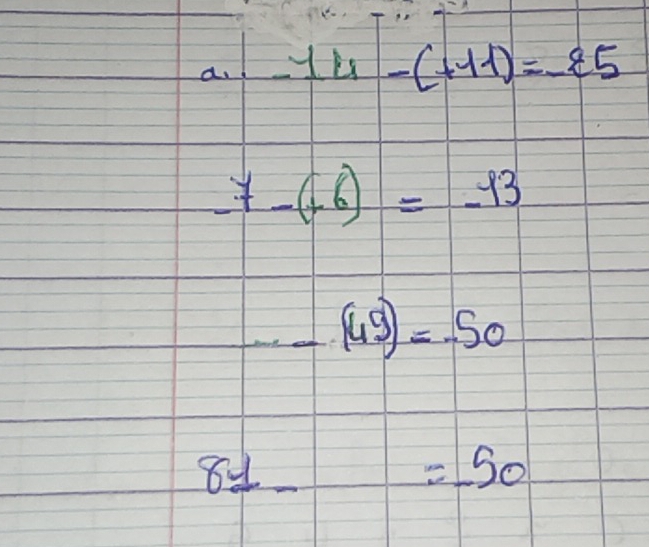 a. -14 -(+11) = -25
-7 -(+6) = -13
-- (49) = -50
81 - = -50